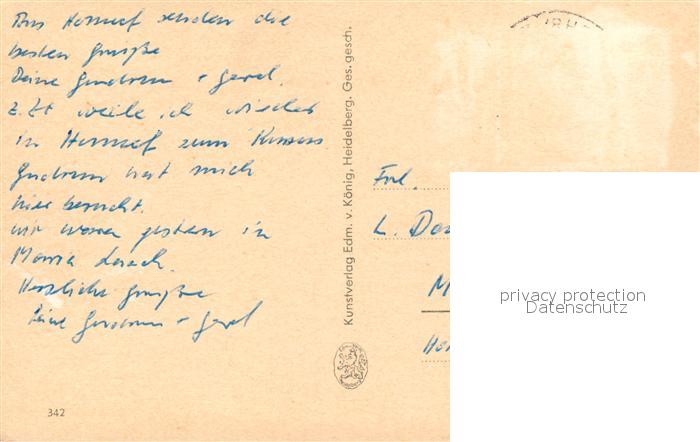 Aus Honnef senden die
besten Grüße
Deine Gudrun + Gerd.
z. Zt weile ich wieder
in Honnef zum Kursus
Gudrun hat mich
hier besucht.
wir waren gestern in
Maria Laach.
Herzliche Grüße
Deine Gudrun + Gerd
342
Kunstverlag Edm. v. König, Heidelberg. Ges. gesch.
Frl.
L.
M
privacy protection
Datenschutz